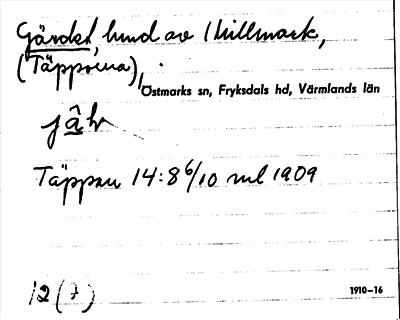 Gärdet, hund av Millmark,
(Täpporna),
Östmarks sn, Fryksdals hd, Värmlands län
jâh
Täppan 14:8 6/10 ml 1909
12 (7)
1910-16